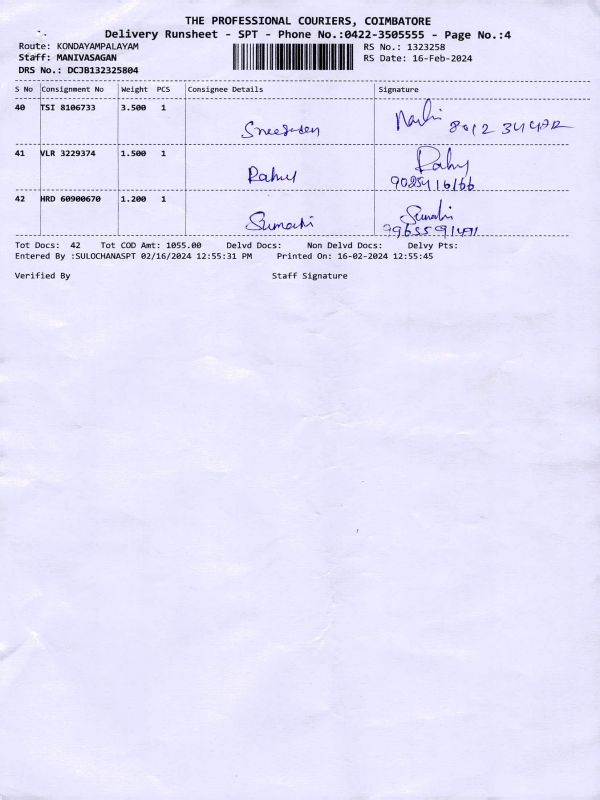 THE PROFESSIONAL COURIERS, COIMBATORE
Delivery Runsheet - SPT - Phone No.:0422-3505555 - Page No.:4
Route: KONDAYAMPALAYAM RS No.: 1323258
Staff: MANIVASAGAN RS Date: 16-Feb-2024
DRS No.: DCJB132325804
S No Consignment No Weight PCS Consignee Details Signature
40 TSI 8106733 3.500 1
41 VLR 3229374 1.500 1
Rahul
42 HRD 60900670 1.200 1
Sumathi
Tot Docs: 42 Tot COD Amt: 1055.00 Delvd Docs: Non Delvd Docs: Delvy Pts:
Entered By :SULOCHANASPT 02/16/2024 12:55:31 PM Printed On: 16-02-2024 12:55:45
Verified By Staff Signature